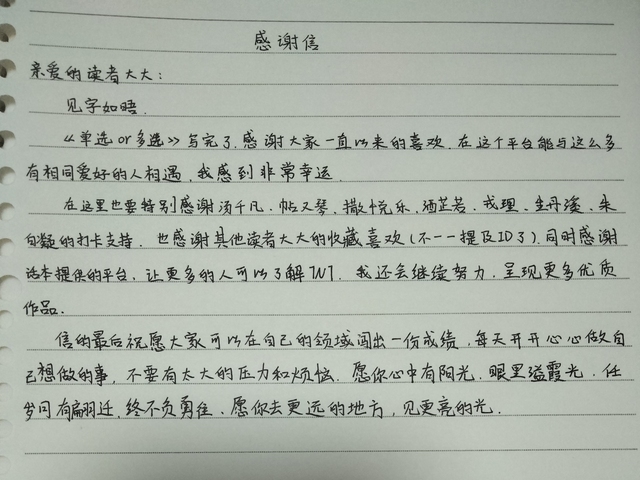 感谢信
亲爱的读者大大：
见字如晤.
《单选or多选》写完了.感谢大家一直以来的喜欢.在这个平台能与这么多
有相同爱好的人相遇,我感到非常幸运.
在这里也要特别感谢汤千凡.帖又琴.撒悦乐.洒芷若.戎理.生丹溪.朱
白凝的打卡支持.也感谢其他读者大大的收藏喜欢(不一一提及ID了).同时感谢
话本提供的平台.让更多的人可以了解TNT.我还会继续努力.呈现更多优质
作品.
信的最后祝愿大家可以在自己的领域闯出一份成绩,每天开开心心做自
己想做的事,不要有太大的压力和烦恼.愿你心中有阳光.眼里溢霞光.任
岁月有翩迁.终不负勇往.愿你去更远的地方,见更亮的光.